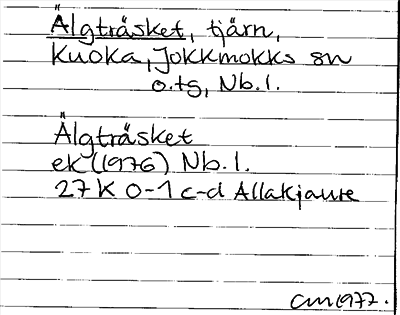 Älgträsket, tjärn,
Kuoka, Jokkmokks sn
o. tg, Nb. l.
Älgträsket
ek (1976) Nb. l.
27 K 0-1 c-d Allakjaure
CM 1977.